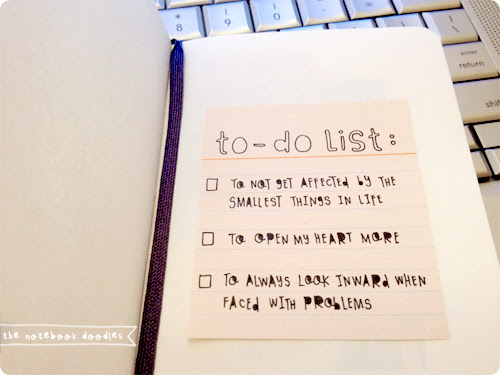 to-do list:
TO NOT GET AFFECTED BY THE
SMALLEST THINGS IN LIFE
TO OPEN MY HEART MORE
TO ALWAYS LOOK INWARD WHEN
FACED WITH PROBLEMS
the notebook doodles
8
9
0
enter
return
shift